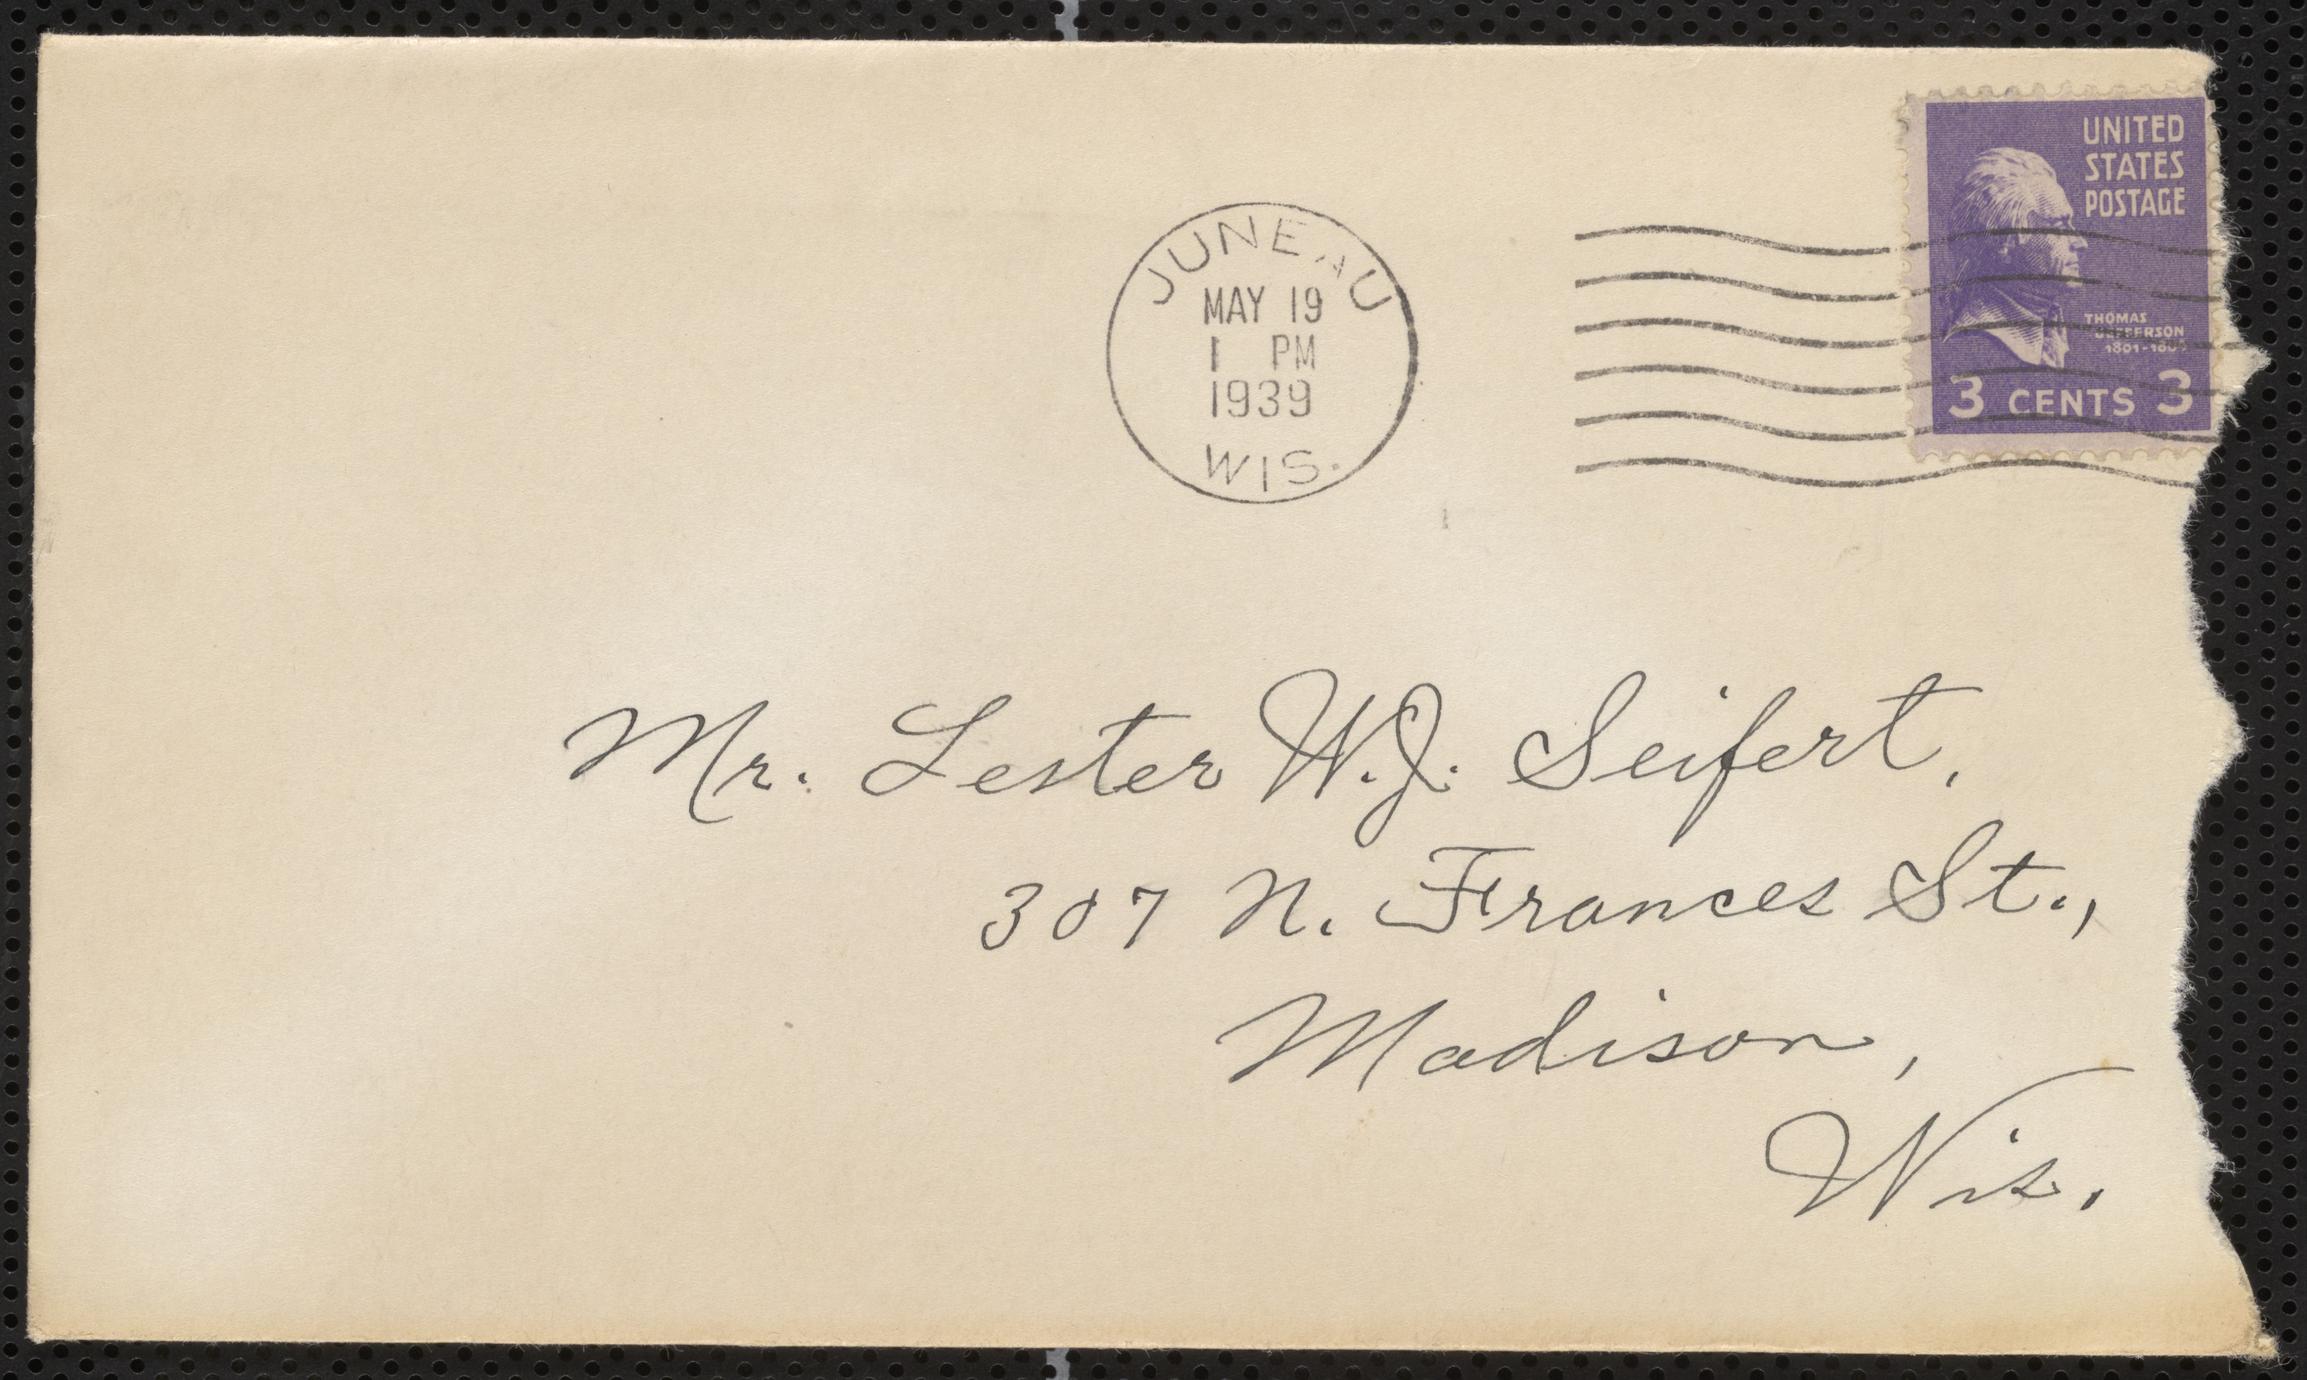 JUNEAU
MAY 19
1 PM
1939
WIS.
UNITED
STATES
POSTAGE
THOMAS
JEFFERSON
1801-1809
3 CENTS 3
Mr. Lester W.J. Seifert,
307 N. Frances St.,
Madison,
Wis.